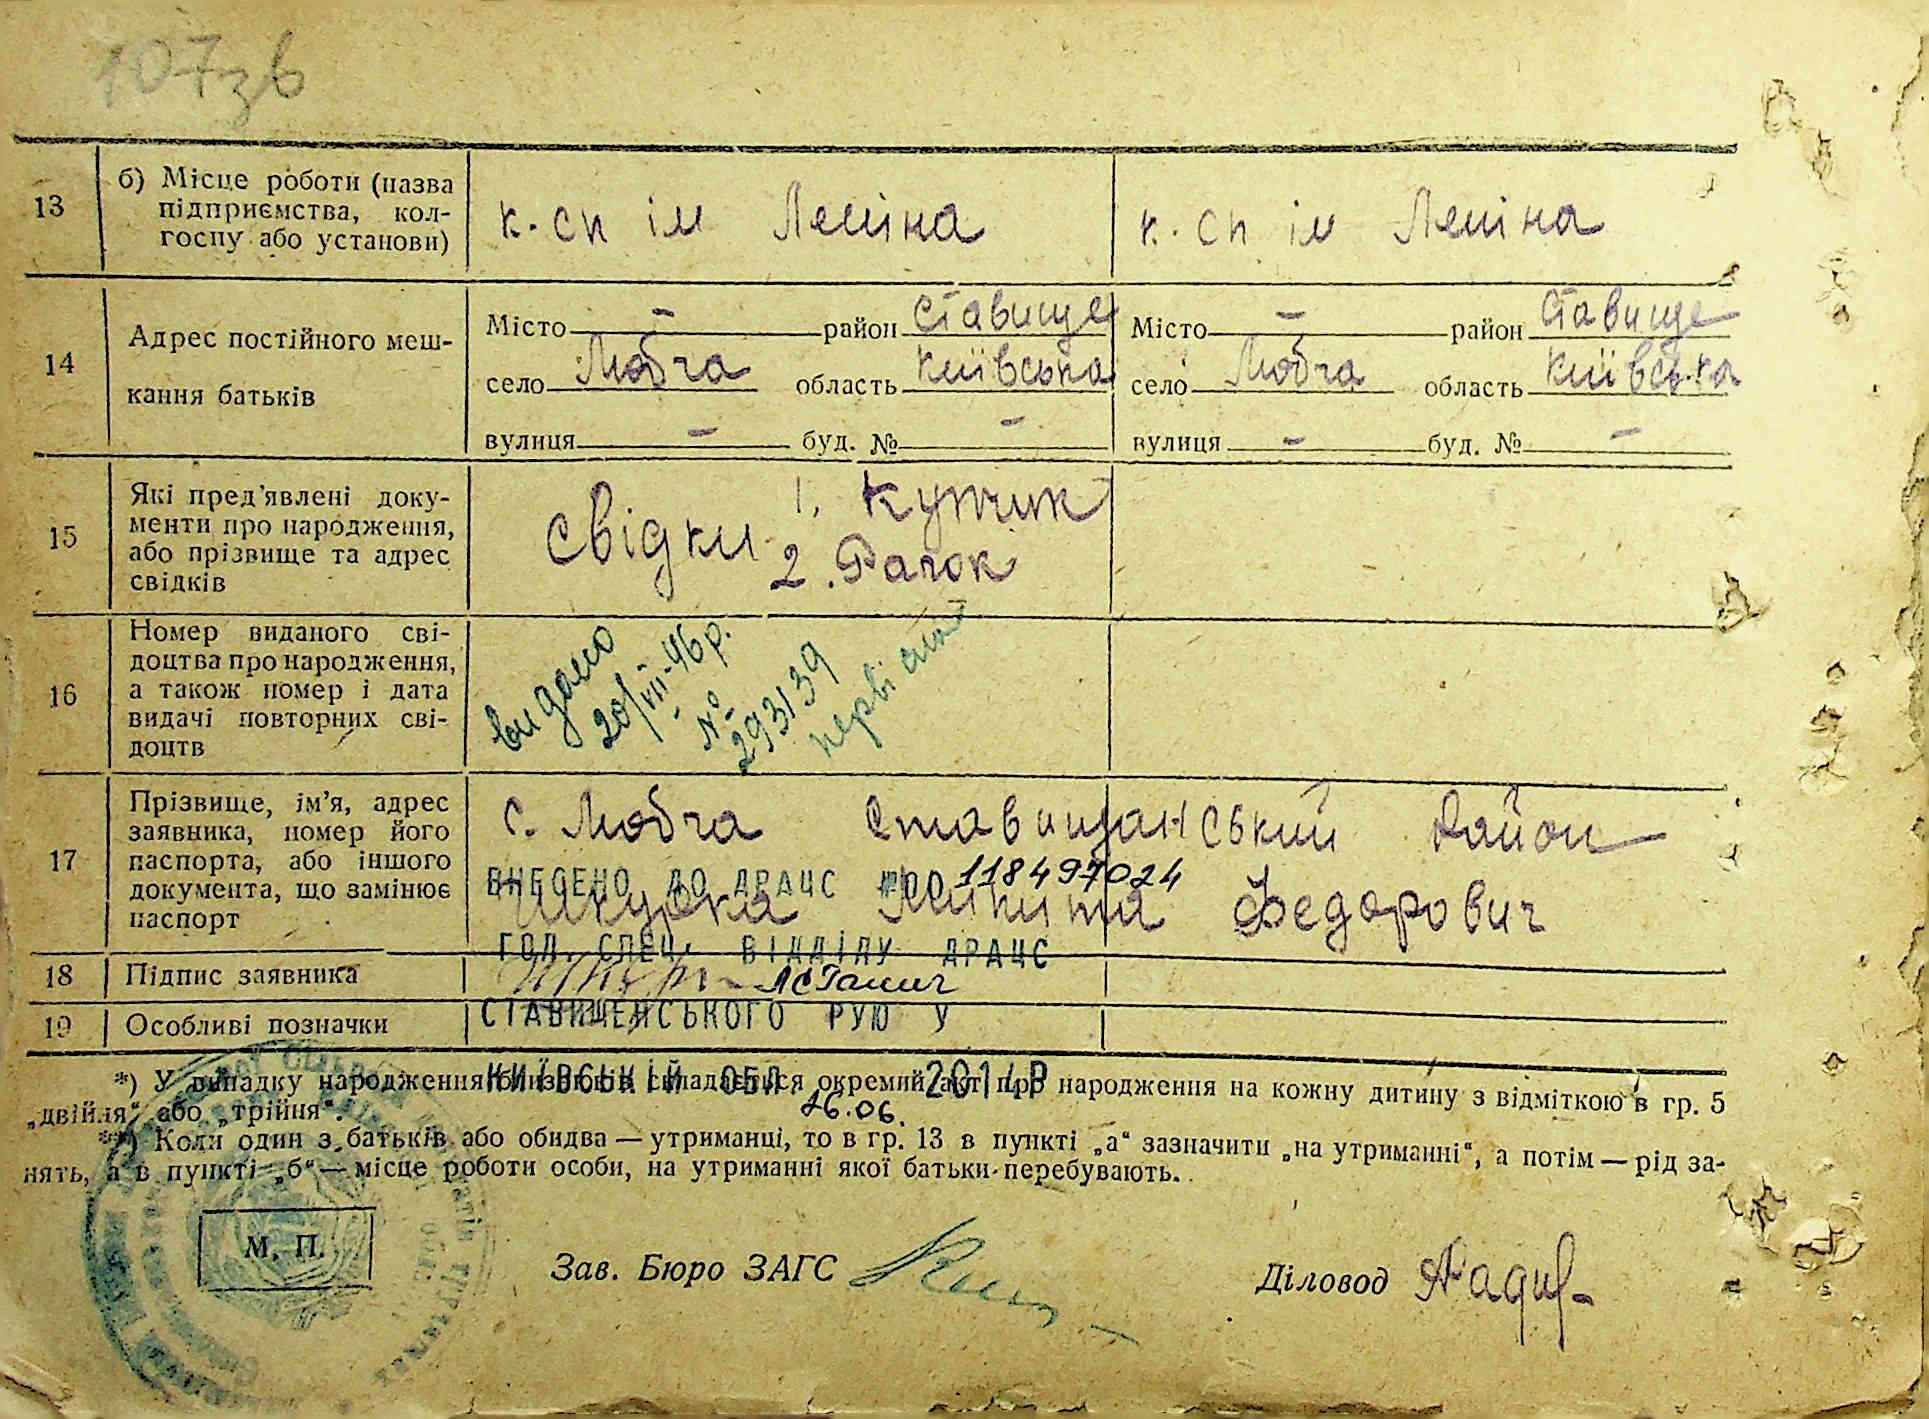 107зв
13 б) Місце роботи (назва підприємства, кол-госпу або установи) к. сп ім Леніна к. сп ім Леніна
14 Адрес постійного меш-кання батьків
Місто — район Ставище Місто — район Ставище
село Любча область Київська село Любча область Київська
вулиця — буд. № — вулиця — буд. № —
15 Які пред'явлені доку-менти про народження, або прізвище та адрес свідків
Свідки 1. Купчик
2. Рачок
16 Номер виданого сві-доцтва про народження, а також номер і дата видачі повторних сві-доцтв
видано
20/VII-46 р.
№
293139
17 Прізвище, ім'я, адрес заявника, номер його паспорта, або іншого документа, що замінює паспорт
с. Любча Ставищанський район
ВНЕСЕНО ДО ДРАЦС 00118497024
Микита Федорович
ГОЛ. СПЕЦ. ВІДДІЛУ ДРАЦС
18 Підпис заявника
СТАВИЩЕНСЬКОГО РУЮ У
19 Особливі позначки
КИЇВСЬКІЙ ОБЛ. 2014Р
26.06.
*) У випадку народження близнюків складається окремий акт про народження на кожну дитину з відміткою в гр. 5
„двійня“ або „трійня“.
**) Коли один з батьків або обидва — утриманці, то в гр. 13 в пункті „а“ зазначити „на утриманні“, а потім — рід за-
нять, а в пункті „б“ — місце роботи особи, на утриманні якої батьки перебувають.
М. П.
Зав. Бюро ЗАГС
Діловод